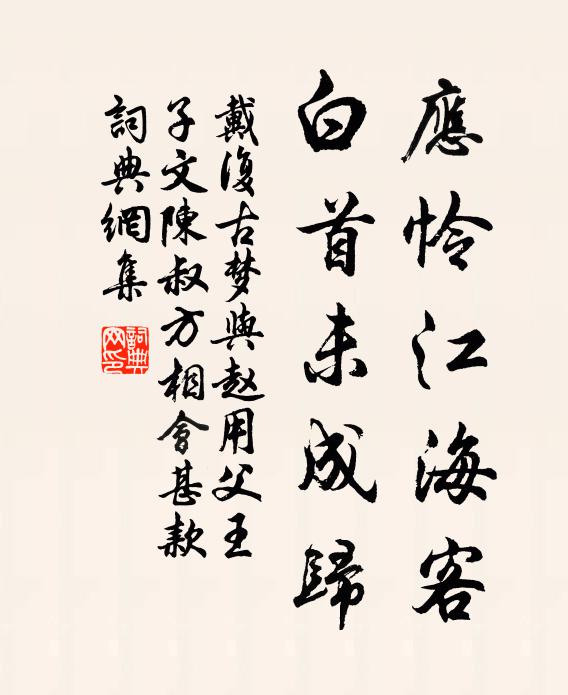 應怜江海客
白首未成歸
戴復古梦與赵用父王
子文陳叔方相會甚款
詞典網集
詞典網印